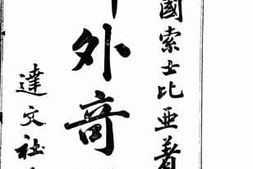 國索士比亞著
外奇
達文社